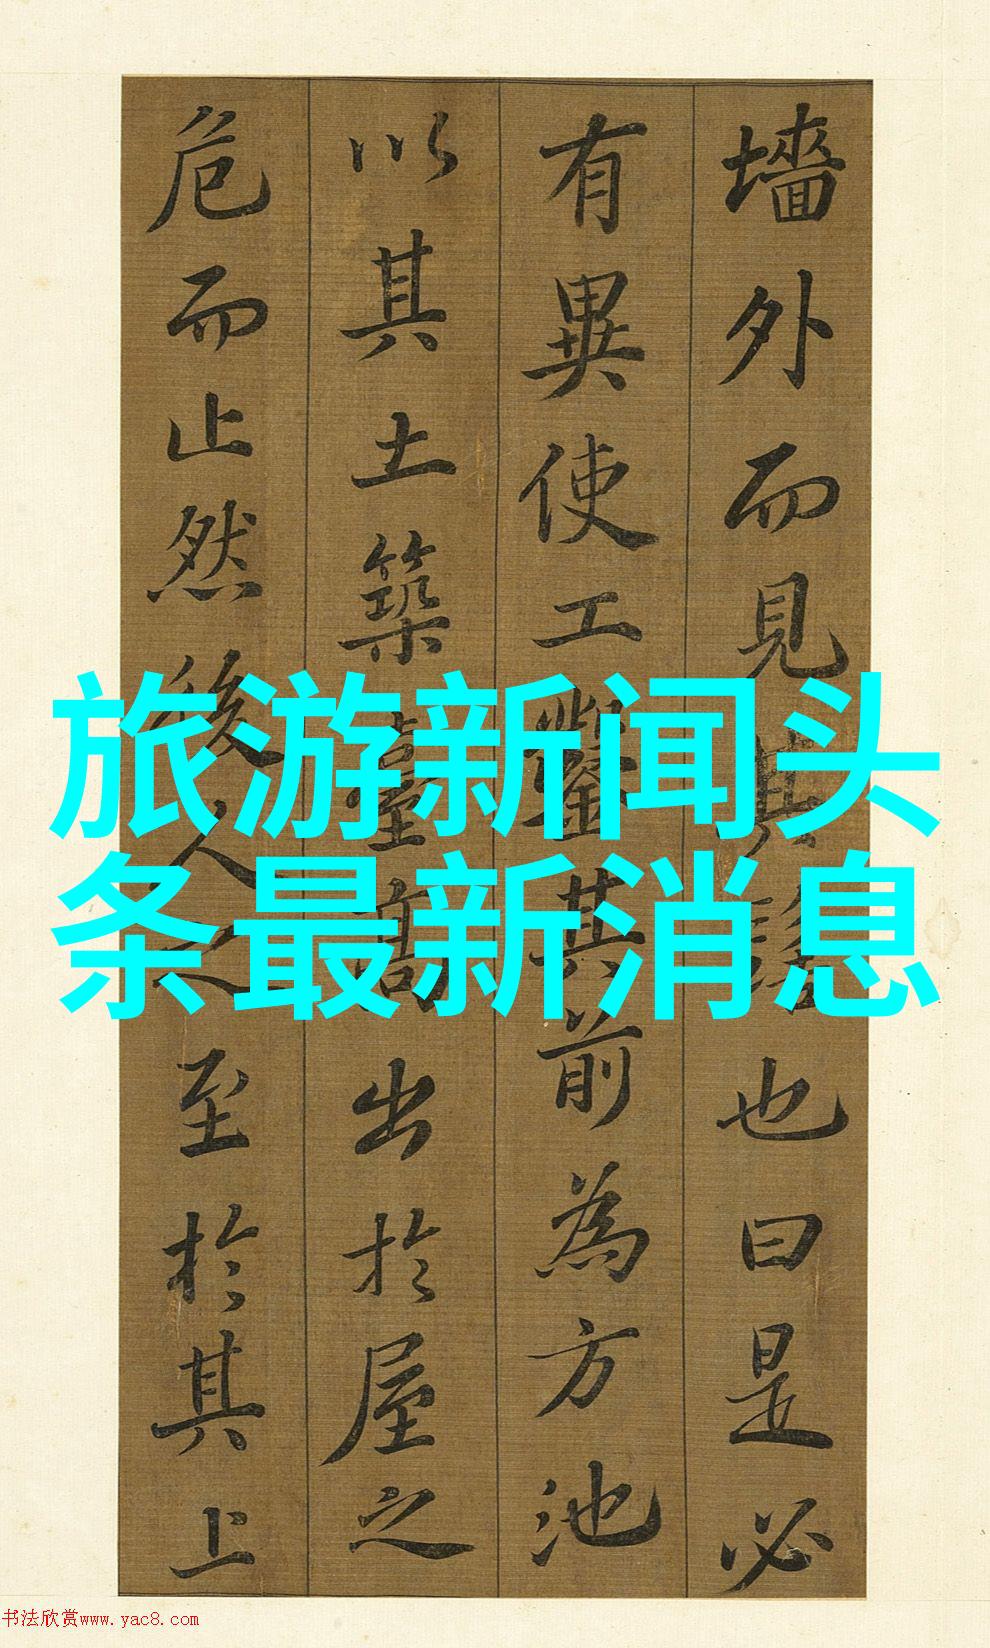 墻外而見其髻也曰是必
有異使工鑿其前為方池
以其土築臺高出於屋之
危而止然後人之至於其上
旅游新闻头
条最新消息
书法欣赏www.yac8.com